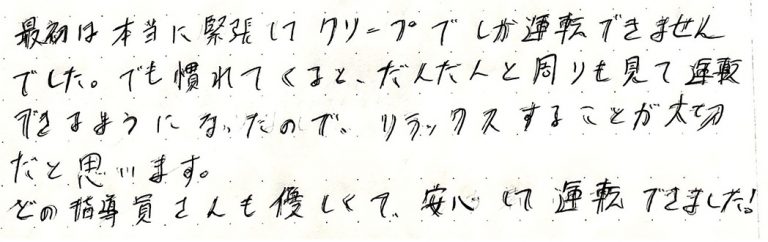 最初は本当に緊張してクリープでしか運転できません
でした。でも慣れてくると、だんだんと周りも見て運転
できるようになったので、リラックスすることが大切
だと思います。
どの指導員さんも優しくて、安心して運転できました!